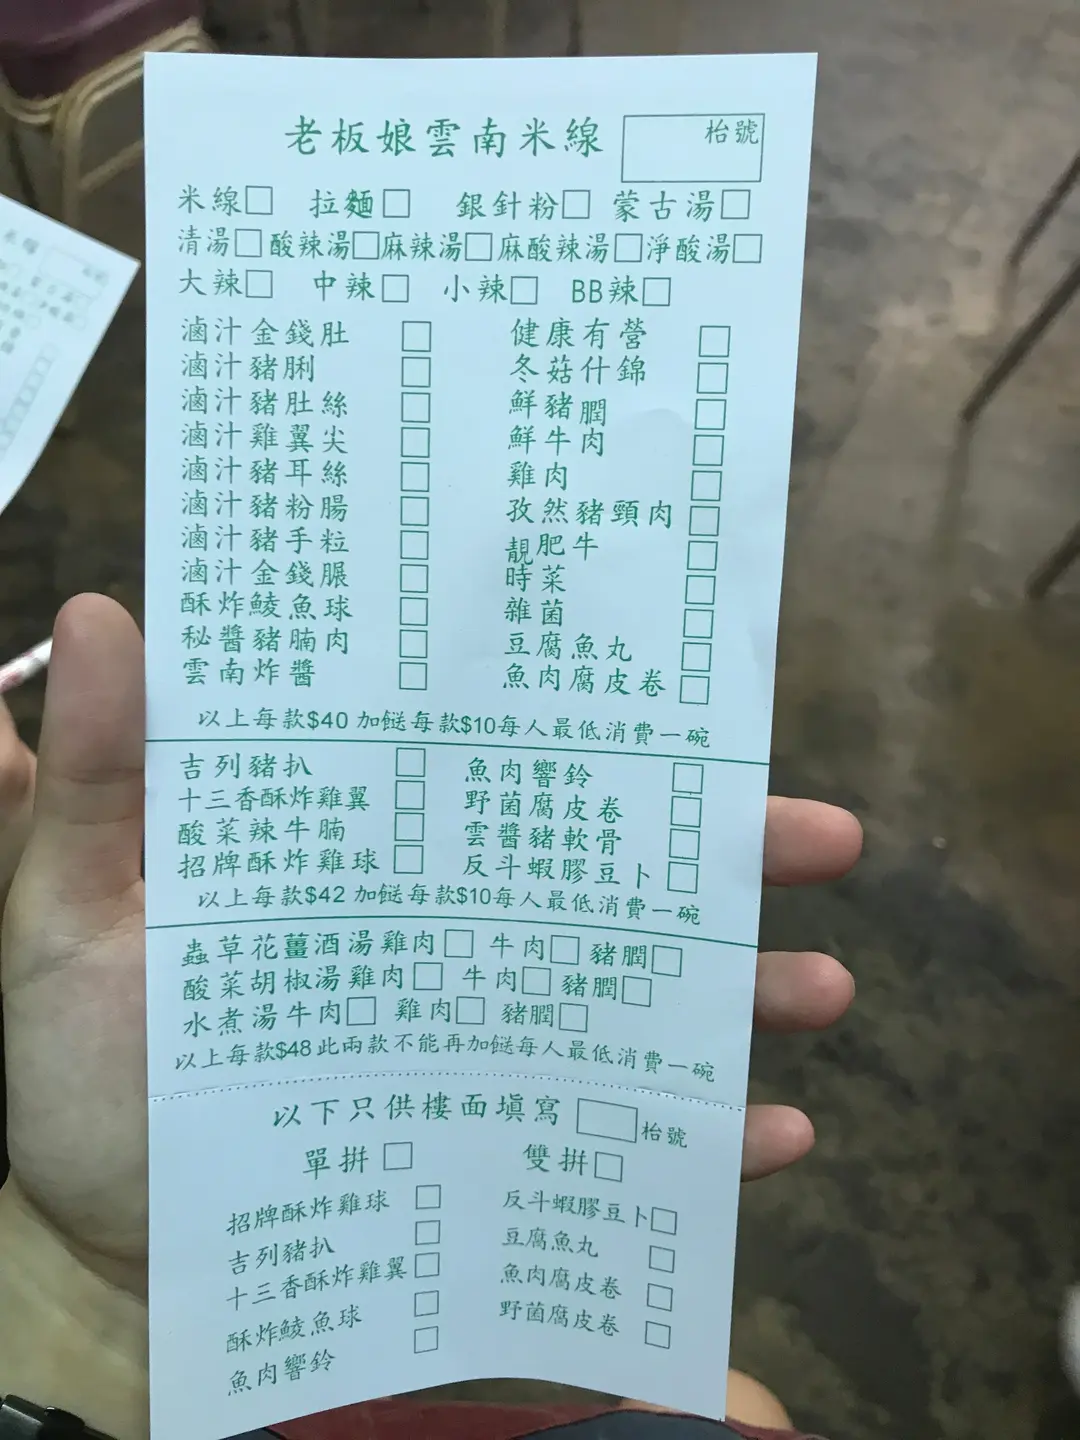 老板娘雲南米線 枱號
米線□ 拉麵□ 銀針粉□ 蒙古湯□
清湯□ 酸辣湯□ 麻辣湯□ 麻酸辣湯□ 淨酸湯□
大辣□ 中辣□ 小辣□ BB辣□
滷汁金錢肚□ 健康有營□
滷汁豬脷□ 冬菇什錦□
滷汁豬肚絲□ 鮮豬膶□
滷汁雞翼尖□ 鮮牛肉□
滷汁豬耳絲□ 雞肉□
滷汁豬粉腸□ 孜然豬頸肉□
滷汁豬手粒□ 靚肥牛□
滷汁金錢𦟌□ 時菜□
酥炸鯪魚球□ 雜菌□
秘醬豬腩肉□ 豆腐魚丸□
雲南炸醬□ 魚肉腐皮卷□
以上每款$40 加餸每款$10每人最低消費一碗
吉列豬扒□ 魚肉響鈴□
十三香酥炸雞翼□ 野菌腐皮卷□
酸菜辣牛腩□ 雲醬豬軟骨□
招牌酥炸雞球□ 反斗蝦膠豆卜□
以上每款$42 加餸每款$10每人最低消費一碗
蟲草花薑酒湯雞肉□ 牛肉□ 豬膶□
酸菜胡椒湯雞肉□ 牛肉□ 豬膶□
水煮湯牛肉□ 雞肉□ 豬膶□
以上每款$48此兩款不能再加餸每人最低消費一碗
以下只供樓面填寫 □枱號
單拼□ 雙拼□
招牌酥炸雞球□ 反斗蝦膠豆卜□
吉列豬扒□ 豆腐魚丸□
十三香酥炸雞翼□ 魚肉腐皮卷□
酥炸鯪魚球□ 野菌腐皮卷□
魚肉響鈴□